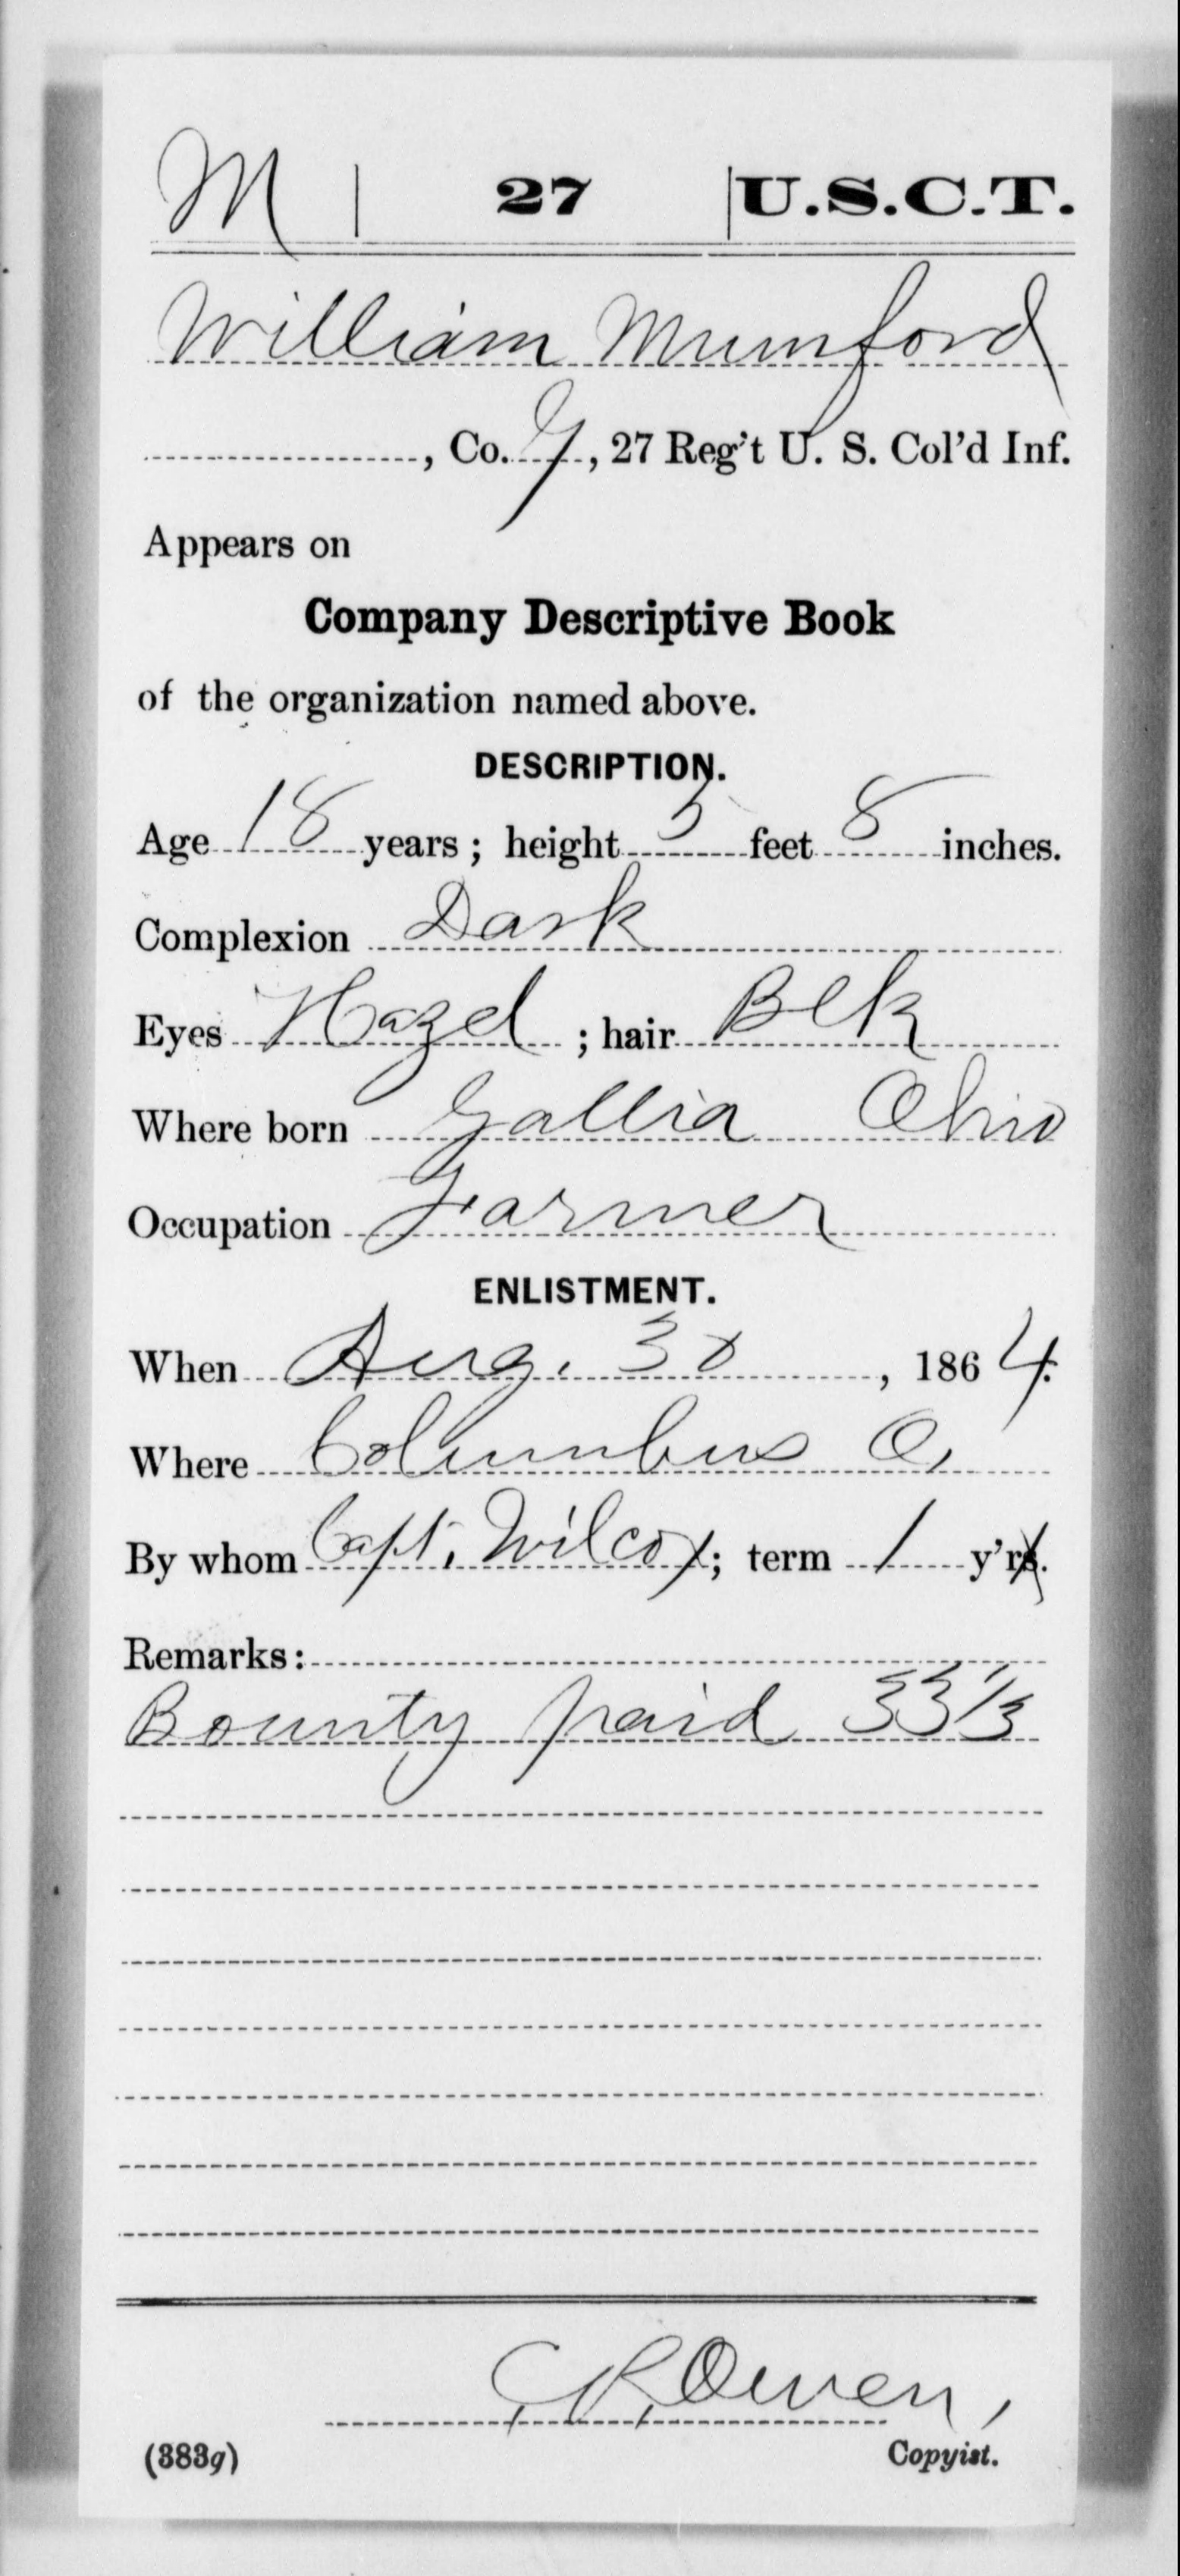 M | 27 | U.S.C.T.
William Mumford
, Co. G, 27 Reg't U. S. Col'd Inf.
Appears on
Company Descriptive Book
of the organization named above.
DESCRIPTION.
Age 18 years; height 5 feet 8 inches.
Complexion Dark
Eyes Hazel ; hair Blk
Where born Gallia Ohio
Occupation Farmer
ENLISTMENT.
When Aug. 30, 1864.
Where Columbus O.
By whom Capt. Wilcox; term 1 y'rs.
Remarks:
Bounty paid 33 1/3
C R Owen,
(383g) Copyist.